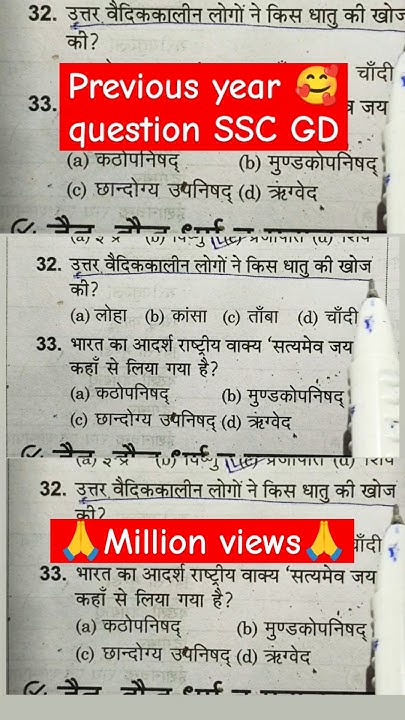 32. उत्तर वैदिककालीन लोगों ने किस धातु की खोज
की?
चाँदी
Previous year 🥰
question SSC GD
33.
जय
(a) कठोपनिषद् (b) मुण्डकोपनिषद्
(c) छान्दोग्य उपनिषद् (d) ऋग्वेद
32. उत्तर वैदिककालीन लोगों ने किस धातु की खोज
की?
(a) लोहा (b) कांसा (c) ताँबा (d) चाँदी
33. भारत का आदर्श राष्ट्रीय वाक्य ‘सत्यमेव जय
कहाँ से लिया गया है?
(a) कठोपनिषद् (b) मुण्डकोपनिषद्
(c) छान्दोग्य उपनिषद् (d) ऋग्वेद
32. उत्तर वैदिककालीन लोगों ने किस धातु की खोज
की?
🙏Million views🙏
चाँदी
33. भारत का आदर्श राष्ट्रीय वाक्य ‘सत्यमेव जय
कहाँ से लिया गया है?
(a) कठोपनिषद् (b) मुण्डकोपनिषद्
(c) छान्दोग्य उपनिषद् (d) ऋग्वेद